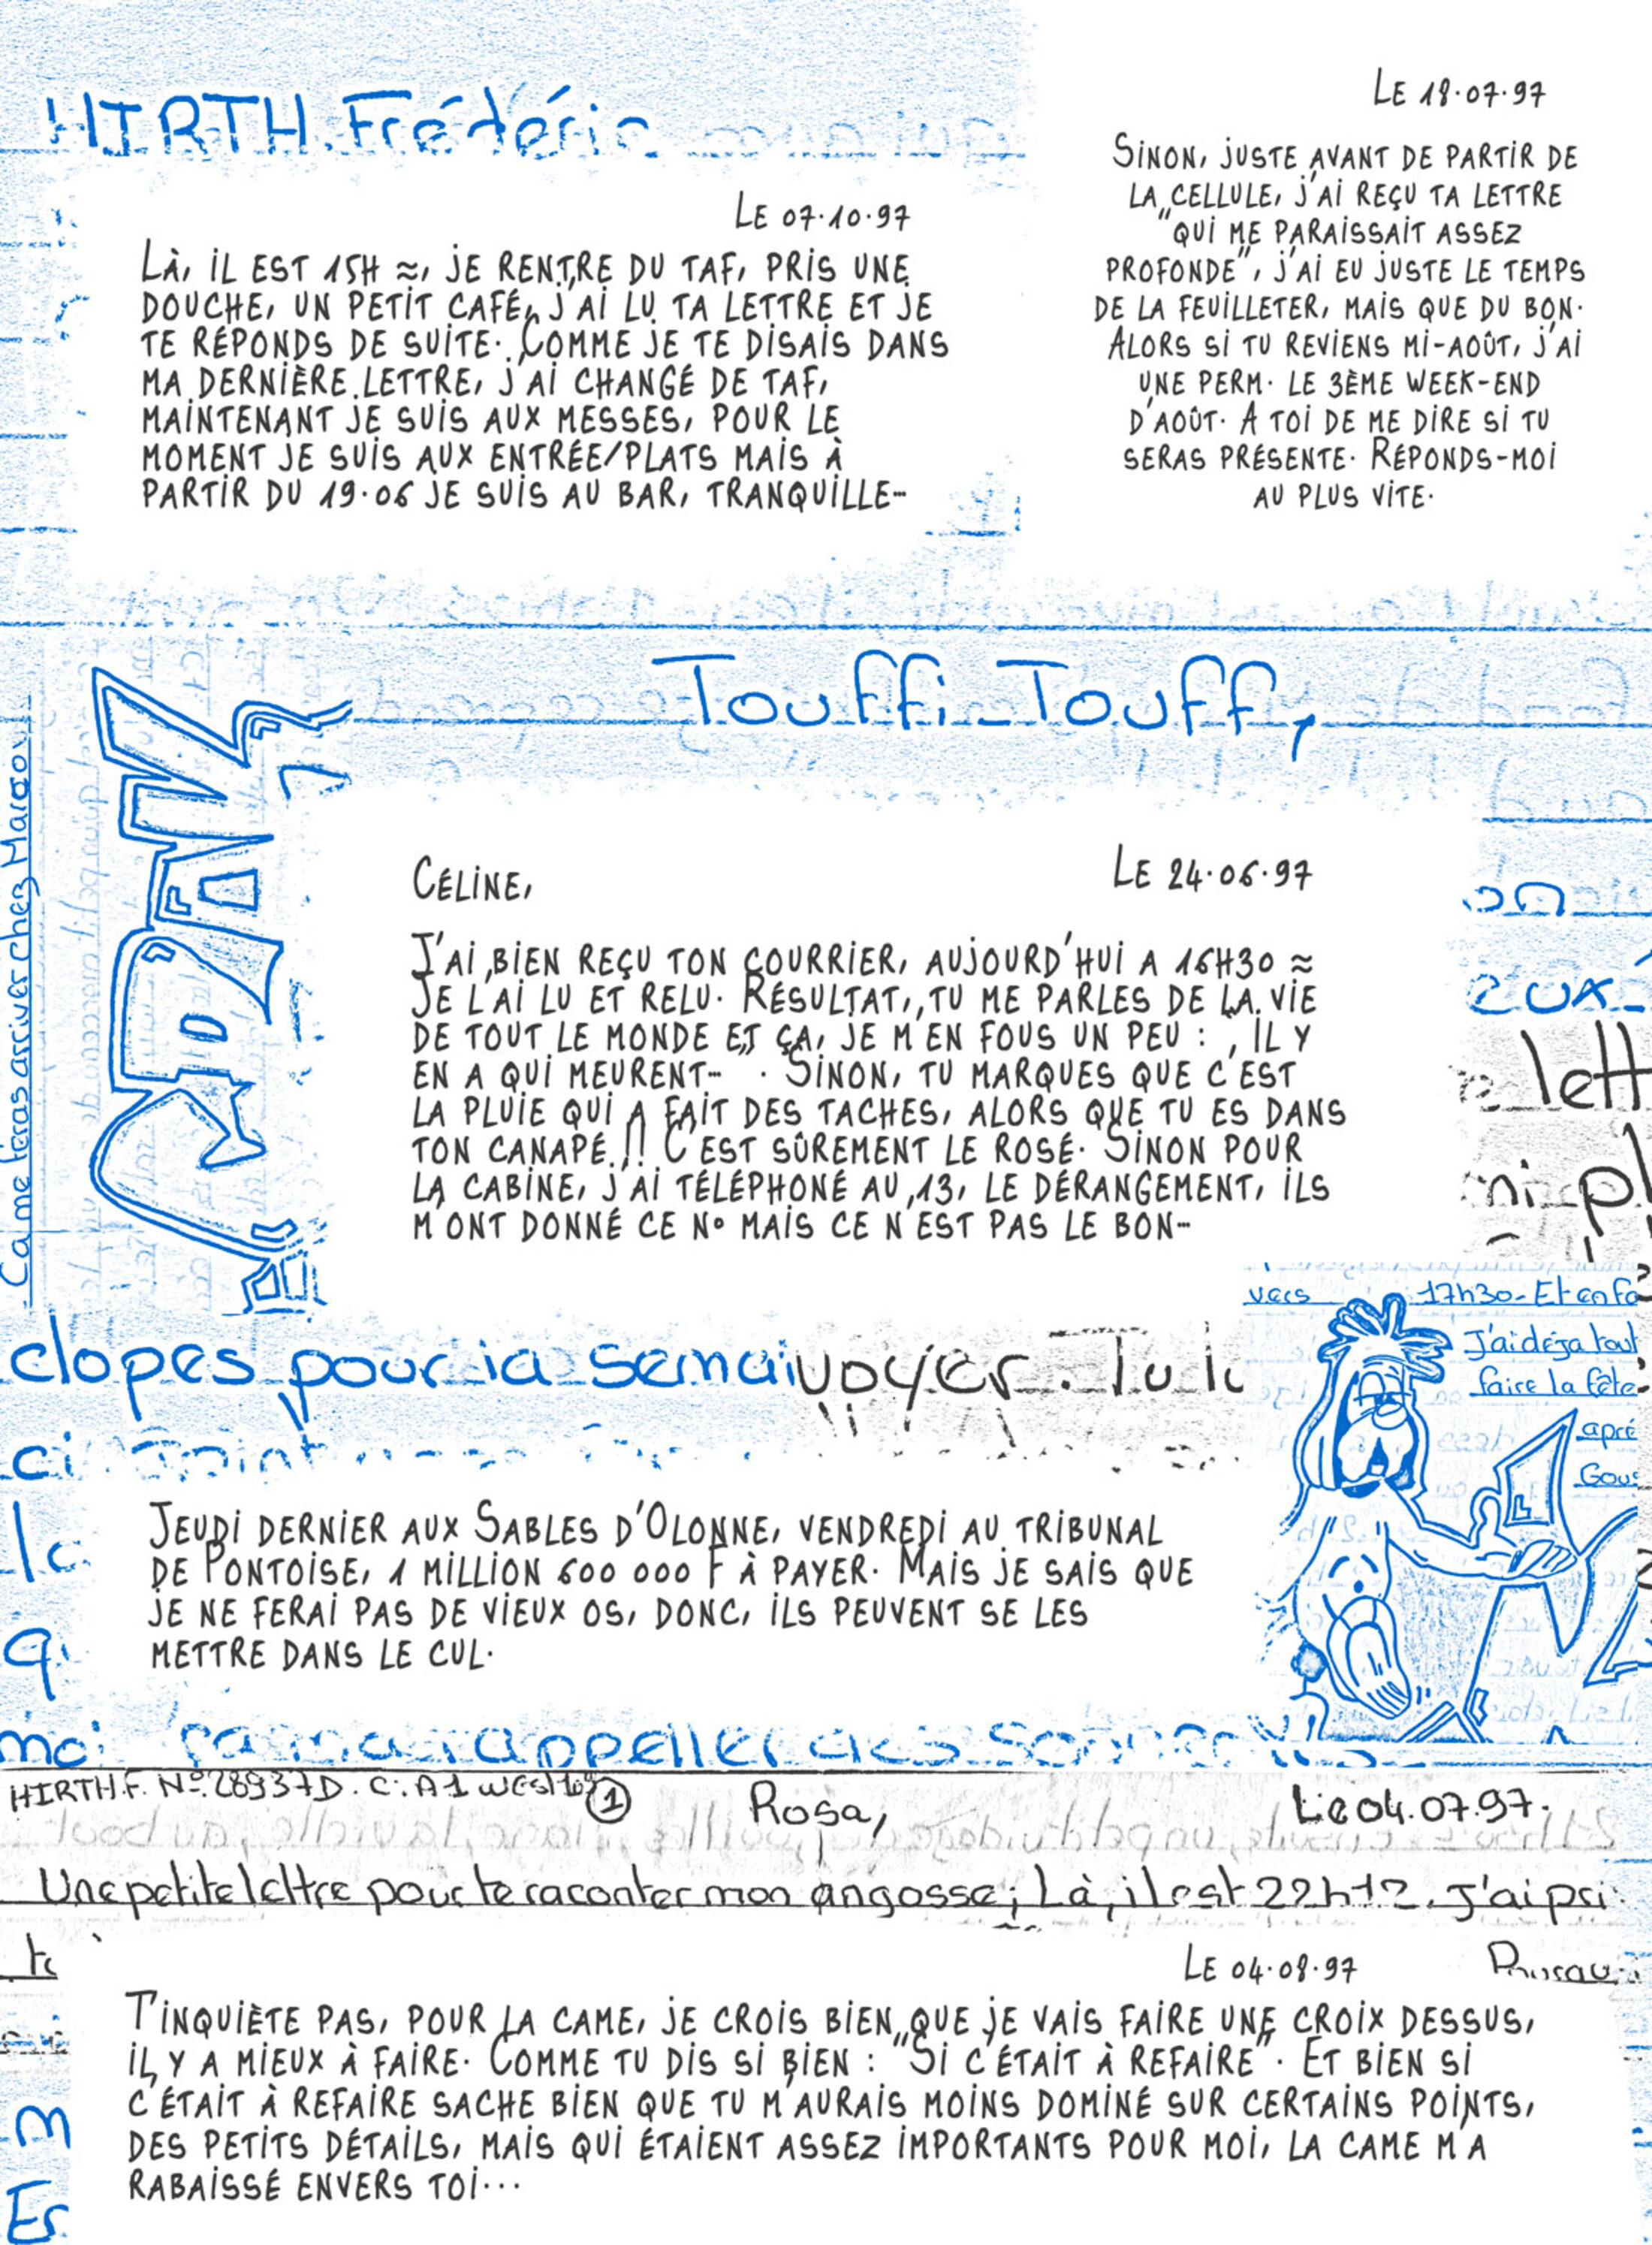 HIRTH Frédéric
LE 07.10.97
LÀ, IL EST 15H ≈, JE RENTRE DU TAF, PRIS UNE
DOUCHE, UN PETIT CAFÉ, J'AI LU TA LETTRE ET JE
TE RÉPONDS DE SUITE. COMME JE TE DISAIS DANS
MA DERNIÈRE LETTRE, J'AI CHANGÉ DE TAF,
MAINTENANT JE SUIS AUX MESSES, POUR LE
MOMENT JE SUIS AUX ENTRÉE/PLATS MAIS À
PARTIR DU 19.06 JE SUIS AU BAR, TRANQUILLE...
LE 18.07.97
SINON, JUSTE AVANT DE PARTIR DE
LA CELLULE, J'AI REÇU TA LETTRE
"QUI ME PARAISSAIT ASSEZ
PROFONDE", J'AI EU JUSTE LE TEMPS
DE LA FEUILLETER, MAIS QUE DU BON.
ALORS SI TU REVIENS MI-AOÛT, J'AI
UNE PERM. LE 3ÈME WEEK-END
D'AOÛT. A TOI DE ME DIRE SI TU
SERAS PRÉSENTE. RÉPONDS-MOI
AU PLUS VITE.
Touffi-Touff,
Ca me feras arriver chez
CÉLINE,
LE 24.06.97
J'AI BIEN REÇU TON COURRIER, AUJOURD'HUI A 16H30 ≈
JE L'AI LU ET RELU. RÉSULTAT, TU ME PARLES DE LA VIE
DE TOUT LE MONDE ET ÇA, JE M'EN FOUS UN PEU : "IL Y
EN A QUI MEURENT..." . SINON, TU MARQUES QUE C'EST
LA PLUIE QUI A FAIT DES TACHES, ALORS QUE TU ES DANS
TON CANAPÉ !! C'EST SÛREMENT LE ROSÉ. SINON POUR
LA CABINE, J'AI TÉLÉPHONÉ AU 13, LE DÉRANGEMENT, ILS
M'ONT DONNÉ CE N° MAIS CE N'EST PAS LE BON...
on
eux
lett
ni pl
vers 17h30- Et en fa
J'ai déja tout
faire la fête
apré
Gous
clopes pour la semai
voyer. Tu
ci
JEUDI DERNIER AUX SABLES D'OLONNE, VENDREDI AU TRIBUNAL
DE PONTOISE, 1 MILLION 600 000 F À PAYER. MAIS JE SAIS QUE
JE NE FERAI PAS DE VIEUX OS, DONC, ILS PEUVENT SE LES
METTRE DANS LE CUL.
moi rappeller des
HIRTH.F. N°.28937D. C: A1 West ①
Rosa,
Le 04.07.97.
Une petite lettre pour te raconter mon angosse; Là, il est 22h12. J'ai pri
LE 04.08.97
T'INQUIÈTE PAS, POUR LA CAME, JE CROIS BIEN QUE JE VAIS FAIRE UNE CROIX DESSUS,
IL Y A MIEUX À FAIRE. COMME TU DIS SI BIEN : "SI C'ÉTAIT À REFAIRE". ET BIEN SI
C'ÉTAIT À REFAIRE SACHE BIEN QUE TU M'AURAIS MOINS DOMINÉ SUR CERTAINS POINTS,
DES PETITS DÉTAILS, MAIS QUI ÉTAIENT ASSEZ IMPORTANTS POUR MOI, LA CAME M'A
RABAISSÉ ENVERS TOI...